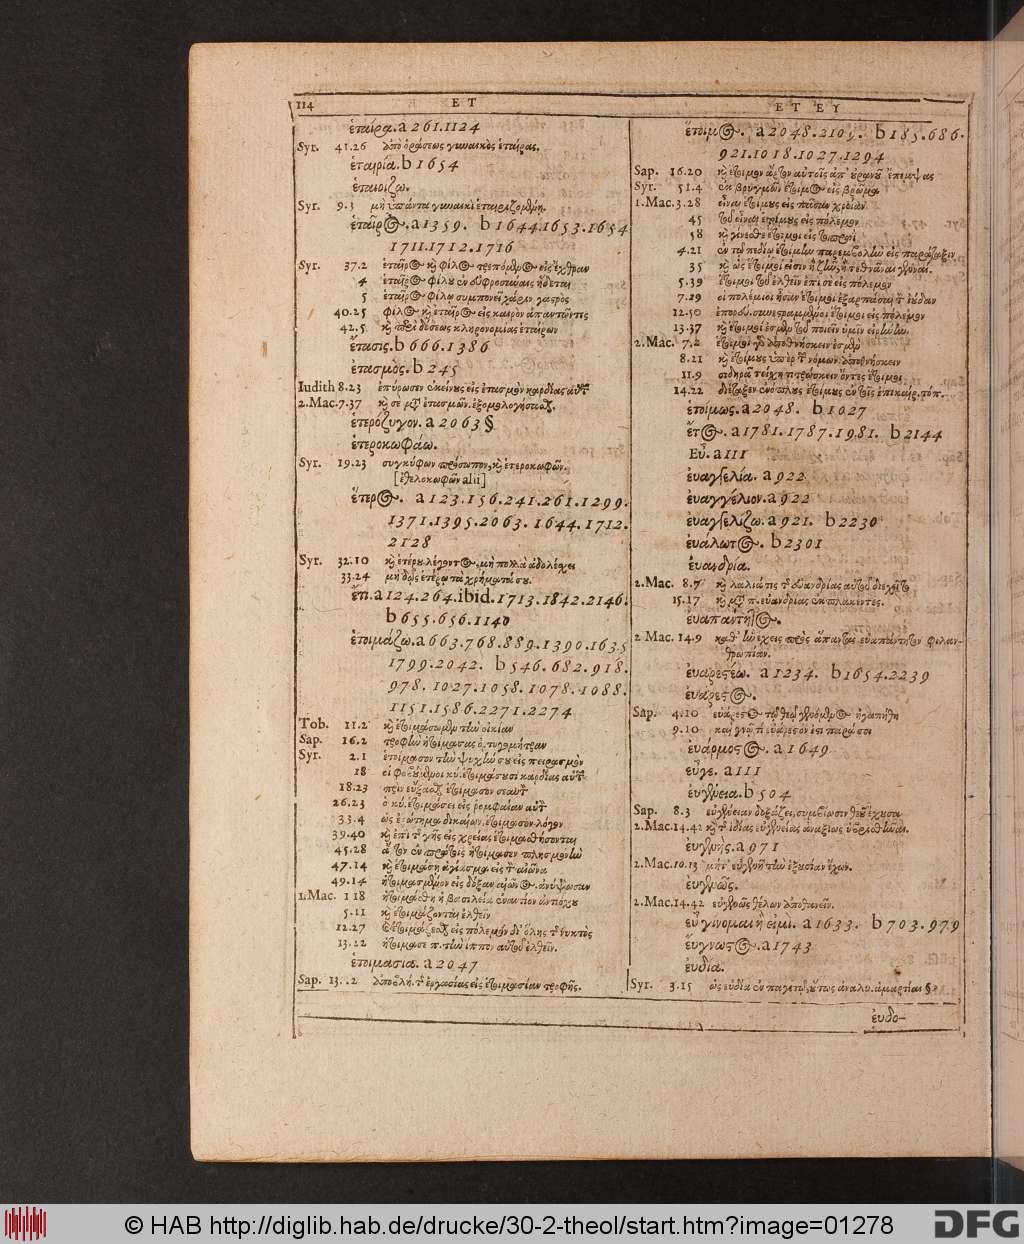 114 E T
E T E Y
ἑταίρα. a 261.1124
Syr. 41.26 ἀπὸ ὁράσεως γυναικὸς ἑταίρας.
ἑταιρία. b 1654
ἑταιρίζω.
Syr. 9.3 μὴ ὑπάντα γυναικὶ ἑταιριζομένῃ.
ἑταῖρος. a 1359. b 1644.1653.1654
1711.1712.1716
Syr. 37.2 ἑταῖρος καὶ φίλος τρεπόμενος εἰς ἔχθραν
4 ἑταῖρος φίλου ἐν εὐφροσύναις ἥδεται
5 ἑταῖρος φίλῳ συμπονεῖ χάριν γαστρός
40.25 φίλος καὶ ἑταῖρος εἰς καιρὸν ἀπαντῶντες
42.5. καὶ περὶ δόσεως κληρονομίας ἑταίρων
ἔτασις. b 666.1386
ἐτασμὸς. b 245
Iudith 8.23 ἐπύρωσεν ἐκείνους εἰς ἐτασμὸν καρδίας αὐτῶν
2.Mac.7.37 καὶ σε μετὰ ἐτασμῶν. ἐξομολογήσασθαι
ἑτερόζυγον. a 2063 §
ἑτεροκωφάω.
Syr. 19.23 συγκύφων πρόσωπον, καὶ ἑτεροκωφῶν.
[ἐθελοκωφῶν alii]
ἕτερος. a 123.156.241.261.1299.
1371.1395.2063. 1644.1712.
2128
Syr. 32.10 καὶ ἑτέρου λέγοντος, μὴ πολλὰ ἀδολέσχει
33.24 μὴ δῷς ἑτέρῳ τὰ χρήματά σου.
ἔτι. a 124.264. ibid. 1713.1842.2146.
b 655.656.1140
ἑτοιμάζω. a 663.768.889.1390.1635
1799.2042. b 546.682.918.
978. 1027.1058.1078.1088.
1151.1586.2271.2274
Tob. 11.2 καὶ ἑτοιμάσωμεν τὴν οἰκίαν
Sap. 16.2 τροφὴν ἡτοίμασας ὀρτυγομήτραν
Syr. 2.1 ἑτοίμασον τὴν ψυχήν σου εἰς πειρασμὸν
18 οἱ φοβούμενοι κύ. ἑτοιμάσουσι καρδίας αὐτῶν
18.23 πρὶν εὔξασθαι ἑτοίμασον σεαυτὸν
26.23 ὁ κύ. ἑτοιμάσει εἰς ῥομφαίαν αὐτὸν
33.4 ὡς ἐρώτημα δικαίων. ἑτοίμασον λόγον
39.40 καὶ ἐπὶ τῆς γῆς εἰς χρείας ἑτοιμασθήσονται
45.28 ἄρτον ἐν πρώτοις ἡτοίμασεν πλησμονὴν
47.14 καὶ ἑτοιμάσῃ ἁγίασμα εἰς τὸν αἰῶνα
49.14 ἡτοιμασμένον εἰς δόξαν αἰῶνος. ἀνύψωσαν
1.Mac. 1 18 ἡτοιμάσθη ἡ βασιλεία ἐναντίον ἀντιόχου
5.11 καὶ ἑτοιμάζονται ἐλθεῖν
12.27 ἑτοιμάζεσθαι εἰς πόλεμον δι' ὅλης τῆς νυκτὸς
13.22 ἡτοίμασε π. τὴν ἵππον αὐτοῦ ἐλθεῖν.
ἑτοιμασία. a 2047
Sap. 13. .2 ἀποβλή. τῆς ἐργασίας εἰς ἑτοιμασίαν τροφῆς.
ἕτοιμος. a 2048.2109. b 185.686.
921.1018.1027.1294
Sap. 16.20 καὶ ἕτοιμον ἄρτον αὐτοῖς ἀπ' οὐρανοῦ ἔπεμψας
Syr. 51.4 ἐκ βρυγμῶν ἕτοιμος εἰς βρῶμα
1.Mac.3.28 εἶναι ἑτοίμους εἰς πᾶσαν χρείαν
45 τοῦ εἶναι ἑτοίμους εἰς πόλεμον
58 καὶ γίνεσθε ἕτοιμοι εἰς τοπρωῒ
4.21 ἐν τῷ πεδίῳ ἑτοίμην παρεμβολὴν εἰς παράταξιν
35 καὶ ὡς ἕτοιμοί εἰσιν ἢ ζῆν, ἢ τεθνάναι γενναί.
5.39 ἕτοιμοι τοῦ ἐλθεῖν ἐπί σε εἰς πόλεμον
7.29 οἱ πολέμιοι ἦσαν ἕτοιμοι ἐξαρπάσαι τὸν ἰούδαν
12.50 ἐπορεύ. συνεστραμμένοι ἕτοιμοι εἰς πόλεμον
13.37 καὶ ἕτοιμοί ἐσμεν τοῦ ποιεῖν ὑμῖν εἰρήνην.
2.Mac. 7.2 ἕτοιμοι γὰρ ἀποθνήσκειν ἐσμὲν
8.21 καὶ ἑτοίμους ὑπὲρ τῶν νόμων ἀποθνήσκειν
11.9 σιδηρᾶ τείχη τιτρώσκειν ὄντες ἕτοιμοι
14.22 διέταξεν ἐνόπλους ἑτοίμους ἐν τοῖς ἐπικαίρ. τόπ.
ἑτοίμως. a 2048. b 1027
ἔτος. a 1781.1787.1981. b 2144
Εὖ. a 111
ἐυαγγελία. a 922
ἐυαγγέλιον. a 922
ἐυαγγελίζω. a 921. b 2230
ἐυάλωτος. b 2301
ἐυανδρία.
2.Mac. 8.7 καὶ λαλιά τις τῆς εὐανδρίας αὐτοῦ διεχεῖτο
15.17 καὶ μετὰ π. εὐανδρίας ἐμπλακέντες.
ἐυαπάντητος.
2 Mac. 14.9 καθ' ἣν ἔχεις πρὸς ἅπαντας εὐαπάντητον φιλαν-
θρωπίαν.
ἐυαρεστέω. a 1234. b 1654.2239
ἐυάρεστος.
Sap. 4.10 εὐάρεστος τῷ θεῷ γενόμενος ἠγαπήθη
9.10 καὶ γνῶ τί εὐάρεστόν ἐστι παρά σοι
ἐυάρμοστος. a 1649
εὖγε. a 111
ἐυγένεια. b 504
Sap. 8.3 εὐγένειαν δοξάζει, συμβίωσιν θεοῦ ἔχουσα
2.Mac.14.42 καὶ τῆς ἰδίας εὐγενείας ἀναξίως ὑβρισθῆναι.
ἐυγενής. a 971
2.Mac.10.13 μήτ' εὐγενῆ τὴν ἐξουσίαν ἔχων.
ἐυγενῶς.
2.Mac.14.42 εὐγενῶς θέλων ἀποθανεῖν.
εὖ γίνομαι ἢ εἰμὶ. a 1633. b 703.979
ἔυγνωστος. a 1743
ἐυδία.
Syr. 3.15 ὡς εὐδία ἐν παγετῷ, οὕτως ἀναλυ. ἁμαρτίαι §
ἐυδο-
© HAB http://diglib.hab.de/drucke/30-2-theol/start.htm?image=01278
DFG